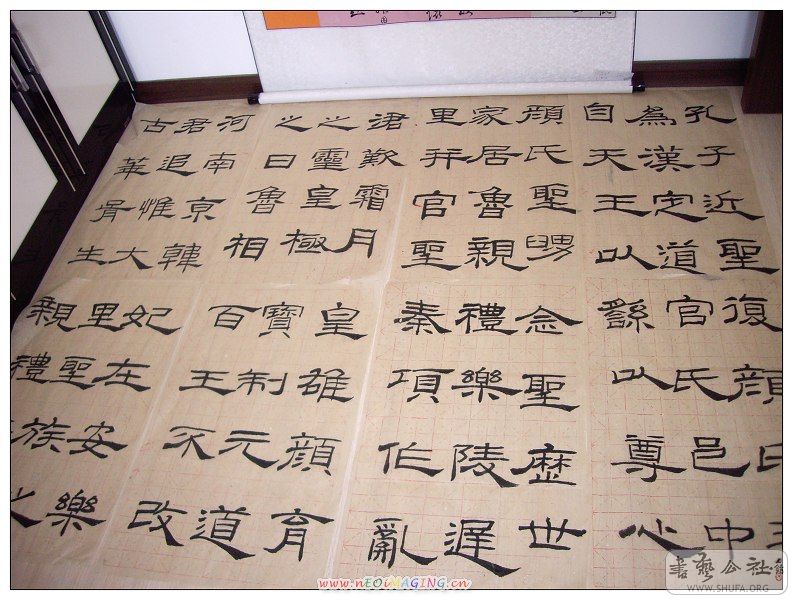 孔子近聖
為漢定道
自天王以
顏氏聖舅
家居魯親
里并官聖
涒歎霜月
之靈皇極
之日魯相
河南京韓
君追惟大
古華胥生
復顏氏
官氏邑中
繇以尊心
念聖歷世
禮樂陵遲
秦項作亂
皇雄顏育
寶制元道
百王不改
妃在安樂
里聖族之
親禮
www.nEOiMAGiNG.cn
書藝公社
WWW.SHUFA.ORG